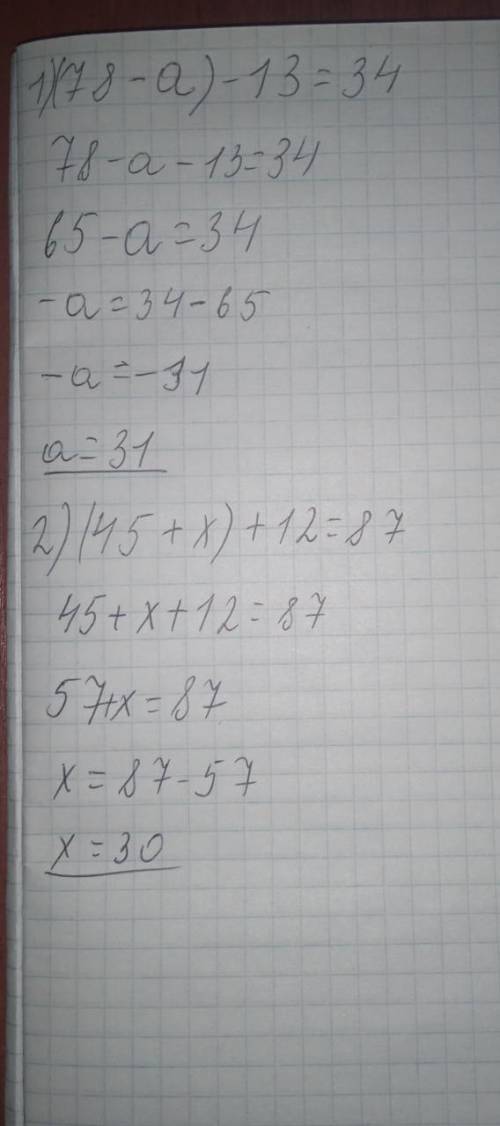 1)(78-a)-13=34
78-a-13=34
65-a=34
-a=34-65
-a=-31
a=31
2)(45+x)+12=87
45+x+12=87
57+x=87
x=87-57
x=30